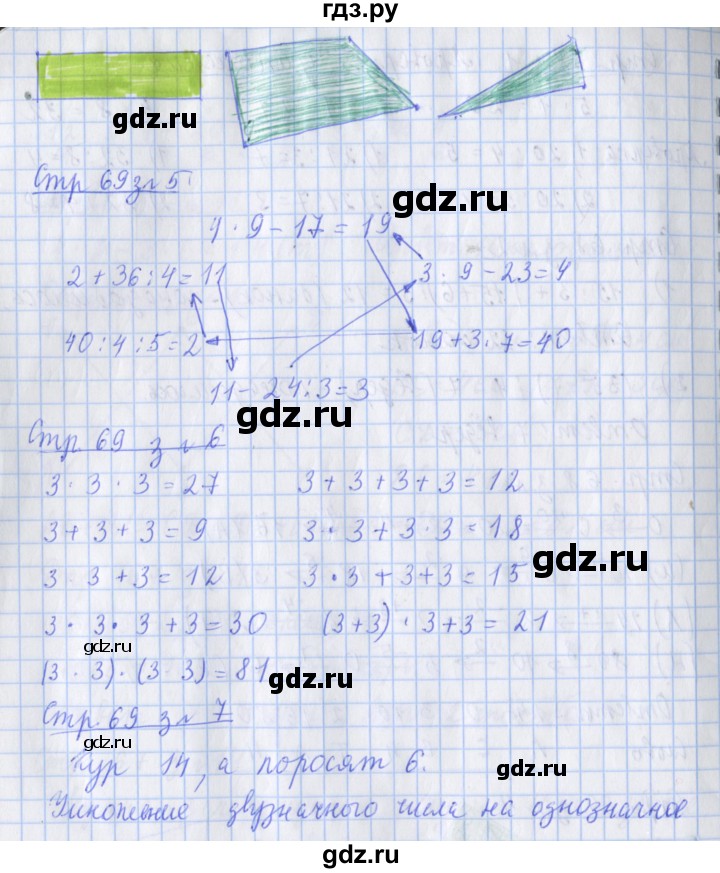 гдз.ру
gdz.ru
Стр 69 з л 5
gdz.ru
4 · 9 - 17 = 19
2 + 36 : 4 = 11
3 · 9 - 23 = 4
40 : 4 : 5 = 2
19 + 3 · 7 = 40
gdz.ru
11 - 24 : 3 = 3
gdz.ru
Стр. 69 з л 6
3 · 3 · 3 = 27 3 + 3 + 3 + 3 = 12
3 + 3 + 3 = 9 3 · 3 + 3 · 3 = 18
gdz.ru
3 · 3 + 3 = 12 3 · 3 + 3 + 3 = 15
3 · 3 · 3 + 3 = 30 (3 + 3) · 3 + 3 = 21
gdz.ru
(3 · 3) · (3 · 3) = 81
gdz.ru
Стр. 69 з л 7
Кур 14, а поросят 6.
gdz.ru
Умножение двузначного числа на однозначное
gdz.ru